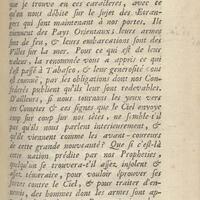 que je trouve en ces caractéres, avec ce
qu'on nous débite sur le sujet des Etran-
gers qui sont maintenant à nos portes. Ils
viennent des Pays Orientaux : leurs armes
sont de feu, & leurs embarcations sont des
Villes sur la mer. Pour ce qui est de leur
valeur, la renommée vous a appris ce qui
s'est passé à Tabasco, & leur generosité
est connuë, par les obligations dont nos Con-
féderés publient qu'ils leur sont redevables.
D'ailleurs, si nous tournons les yeux vers
ces Cometes & ces signes que le Ciel envoye
coup sur coup sur nos têtes, ne semble-t'il
pas qu'ils nous parlent interieurement, &
qu'ils viennent comme les avant-coureurs
de cette grande nouveauté ? Que si c'est-là
cette nation prédite par nos Prophéties,
quelqu'un se trouvera-t'il assez insolent &
assez témeraire, pour vouloir éprouver ses
forces contre le Ciel, & pour traiter d'en-
nemis, des hommes dont les armes sont ap-